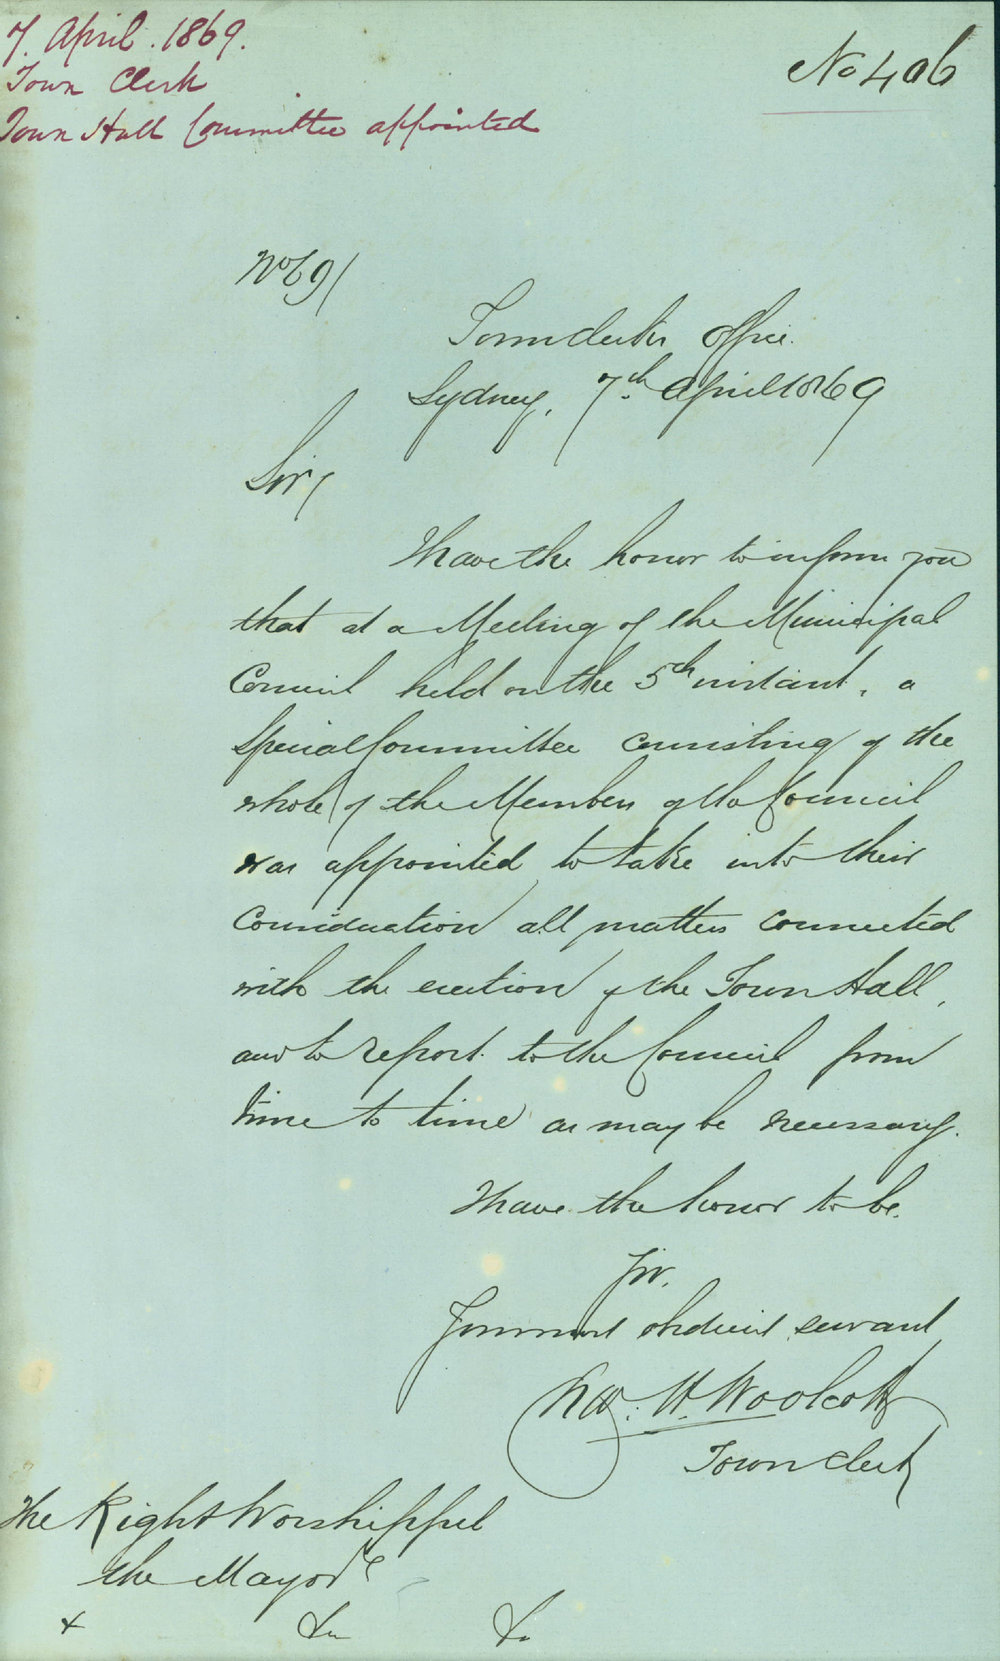 7. April. 1869.
Town Clerk
Town Hall Committee appointed
No 406
No 69/
Town Clerks Office.
Sydney, 7th April 1869
Sir,
I have the honor to inform you
that at a Meeting of the Municipal
Council held on the 5th instant, a
Special Committee consisting of the
whole of the Members of the Council
was appointed to take into their
Consideration all matters connected
with the erection of the Town Hall,
and to report to the Council from
time to time as may be necessary.
I have the honor to be.
Sir,
Your most obedient servant
Chas. H. Woolcott
Town Clerk
The Right Worshippful
the Mayor
&c &c &c